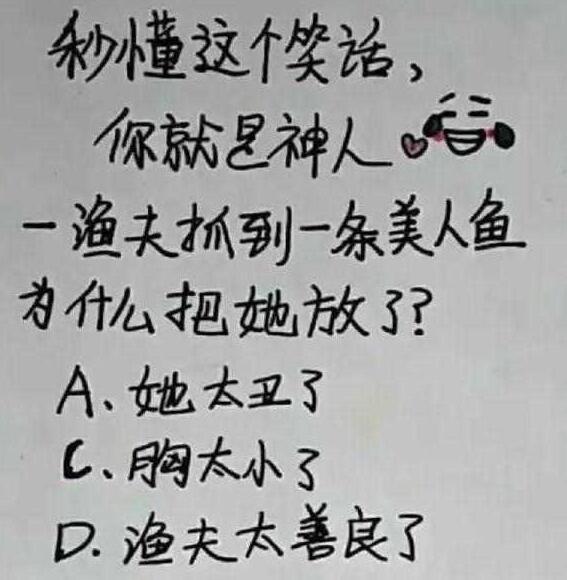 秒懂这个笑话，
你就是神人
一渔夫抓到一条美人鱼
为什么把她放了?
A、她太丑了
C、胸太小了
D. 渔夫太善良了